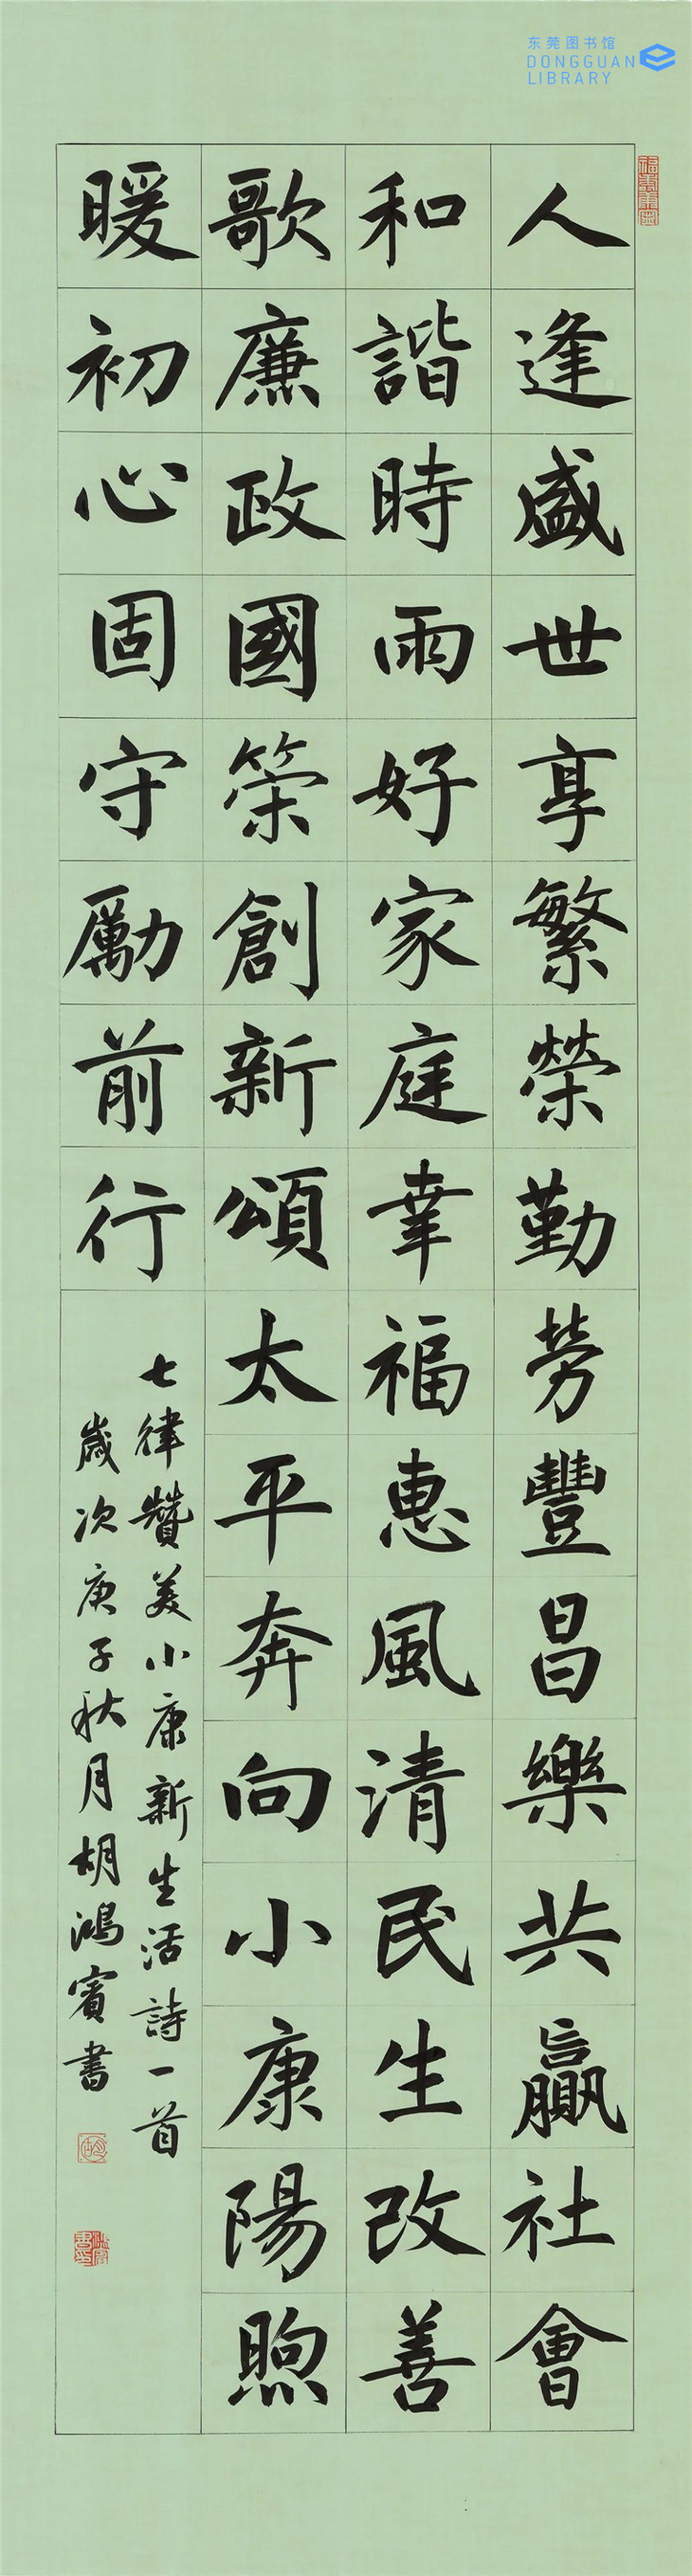 东莞图书馆
DONGGUAN
LIBRARY
人逢盛世享繁榮勤勞豐昌樂共贏社會
和諧時雨好家庭幸福惠風清民生改善
歌廉政國策創新頌太平奔向小康陽煦
暖初心固守勵前行
七律贊美小康新生活詩一首
歲次庚子秋月胡鴻賓書